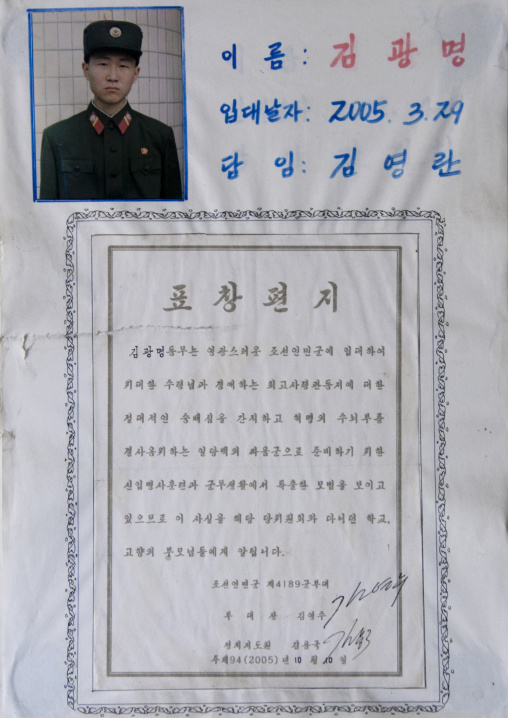 이 름: 김 광 명
입대날자: 2005. 3. 29
담 임: 김 영 란
표 창 편 지
김광명동무는 영광스러운 조선인민군에 입대하여
위대한 수령님과 경애하는 최고사령관동지에 대한
절대적인 숭배심을 간직하고 혁명의 수뇌부를
결사옹위하는 일당백의 싸움군으로 준비하기 위한
신입병사훈련과 군무생활에서 특출한 모범을 보이고
있으므로 이 사실을 해당 당위원회와 다니던 학교,
고향의 부모님들에게 알립니다.
조선인민군 제4189군부대
부 대 장 김영주
정치지도원
주체94(2005)년 10 월 10 일